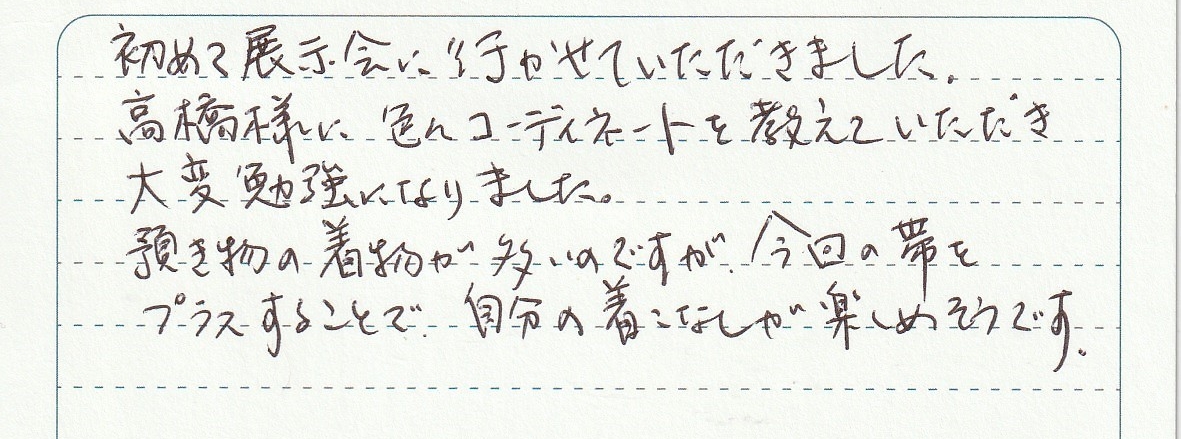 初めて展示会に行かせていただきました.
高橋様に色んコーディネートを教えていただき
大変勉強になりました。
頂き物の着物が多いのですが、今回の帯を
プラスすることで、自分の着こなしが楽しめそうです.